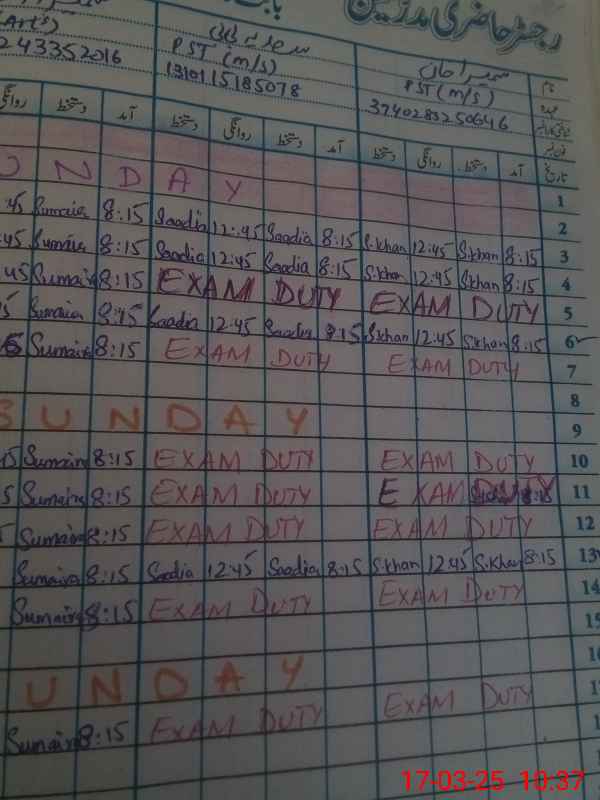 رجسٹر حاضری مدرسین بابت
سمیرا خان
PST (m/s)
3740283250646
سعدیہ بی بی
PST (m/s)
1310115185078
(Art's)
243352016
تاریخ آمد دستخط روانگی دستخط آمد دستخط روانگی دستخط آمد دستخط روانگی
UNDAY 1
2
:45 Sumaia 8:15 Saadia 12:45 Saadia 8:15 S.khan 12:45 S.khan 8:15 3
:45 Sumaia 8:15 Saadia 12:45 Saadia 8:15 S.khan 12:45 S.khan 8:15 4
45 Sumaia 8:15 EXAM DUTY EXAM DUTY 5
5 Sumaia 8:15 Saadia 12:45 Saadia 8:15 S.khan 12:45 S.khan 8:15 6
5 Sumaira 8:15 EXAM DUTY EXAM DUTY 7
8
SUNDAY 9
15 Sumaira 8:15 EXAM DUTY EXAM DUTY 10
5 Sumaira 8:15 EXAM DUTY EXAM DUTY 11
5 Sumaira 8:15 EXAM DUTY EXAM DUTY 12
Sumaira 8:15 Saadia 12:45 Saadia 8:15 S.khan 12:45 S.khan 8:15 13
Sumaira 8:15 EXAM DUTY EXAM DUTY 14
15
UNDAY 1
Sumaira 8:15 EXAM DUTY EXAM DUTY 1
17-03-25 10:37